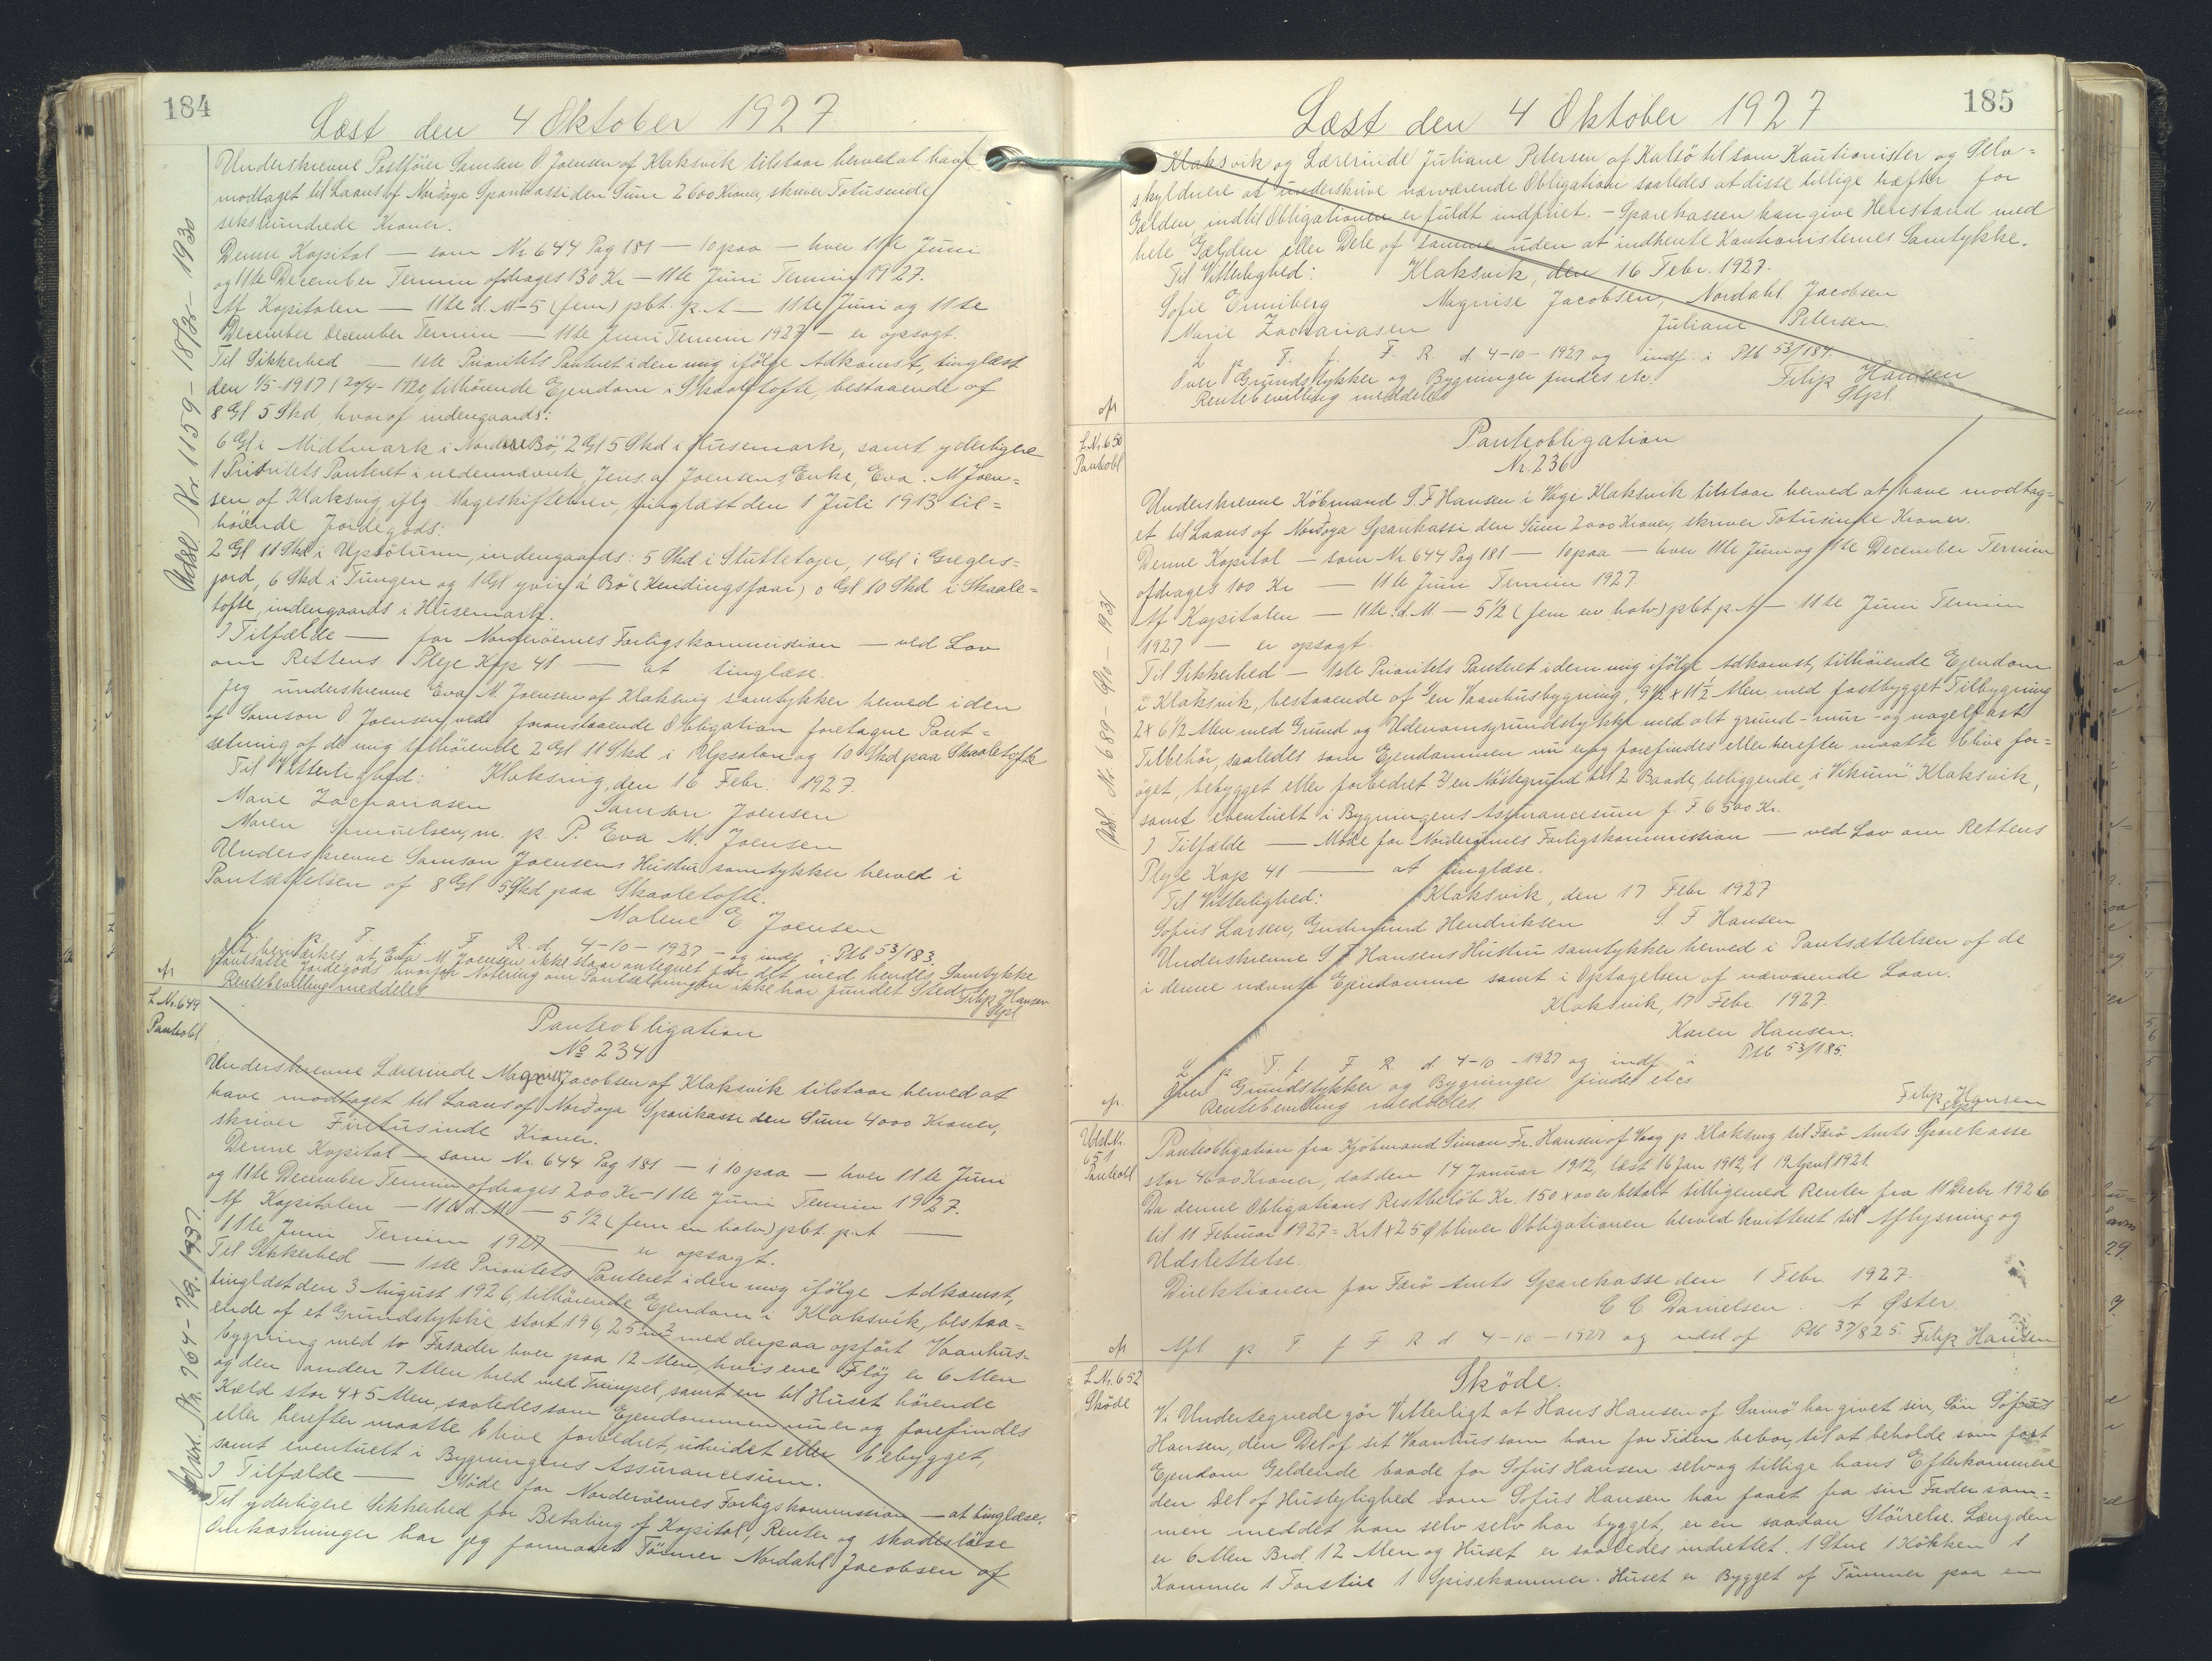 184
Læst den 4 Oktober 1927
Underskrevne Postförer Samson O Joensen af Klaksvik tilstaar herved at have
modtaget til Laans af Norðoya Sparikassi den Sum 2600 Kroner, skriver Totusinde
sekshundrede Kroner.
Denne Kapital — som Nr. 644 Pag 181 — 10 paa — hver 11te Juni
og 11te December Termin afdrages 130 Kr — 11te Juni Termin 1927.
Af Kapitalen — 11te d. M — 5 (fem) pbt. p. A — 11te Juni og 11te
December December Termin — 11te Juni Termin 1927 — er opsagt.
Til Sikkerhed — 1ste Prioritets Panteret i den mig ifölge Adkomst, tinglæst
den 1/5-1917 (20/4-1920, tilhörende Ejendom i Skaaletofte, bestaaende af
8 Gl 5 Skd, hvoraf indengaards:
6 Gl i Midtmark i Nordere Bö, 2 Gl 5 Skd i Husemark, samt yderligere
1 Prioritets Panteret i nedennævnte, Jens. a/ Joensens Enke, Eva. M Joen-
sen af Klaksvig iflg Mageskiftebrev, tinglæst den 1 Juli 1913 til-
hörende Jordegods:
2 Gl 11 Skd i Upsölum, indengaards: 5 Skd i Stuttetojer, 1 Gl i Greglers-
jord, 6 Skd i Tungen og 1 Gl yvir á Bö (Kendingsfaar) 0 Gl 10 Skd i Skaale-
tofte, indengaards i Husemark.
I Tilfælde — for Norderöernes Forligskommission — ved Lov
om Rettens Pleje Kap 41 — at tinglæse.
Jeg underskrevne Eva M. Joensen af Klaksvig samtykker herved i den
af Samson O. Joensen ved foranstaaende Obligation foretagne Pant-
sætning af de mig tilhörende 2 Gl 11 Skd i Upsalon og 10 Skd paa Skaaletofte
Til Vitterlighed: Klaksvig, den 16 Febr. 1927.
Marie Zachariasen Samson Joensen
Maren Samuelsen, m. p. P. Eva M. Joensen
Underskrevne Samson Joensens Hustru samtykker herved i
Pantsættelsen af 8 Gl 5 Skd paa Skaaletofte.
Malene E Joensen
L. p. T. f. F. R. d. 4-10-1927 — og indf. i Ptb 53/183.
Det bemærkes at Eva M. Joensen ikke staar antegnet for det med hendes Samtykke
pantsatte Jordegods hvorfor Notering om Pantsætningen ikke har fundet Sted
Rentebevilling meddeles Filip Hansen
Stpl
Udsl. Nr 1159 - 18/12 - 1930
L. Nr. 649
Pantobl
Panteobligation
№ 234
Underskrevne Lærerinde Magnise Jacobsen af Klaksvik tilstaar herved at
have modtaget til Laans af Norðoya Sparikassi den Sum 4000 Kroner,
skriver Firetusinde Kroner.
Denne Kapital — som Nr. 644 Pag 181 — i 10 paa — hver 11te Juni
og 11te December Termin afdrages 200 Kr — 11te Juni Termin 1927.
Af Kapitalen — 11te d. M — 5 1/2 (fem en halv) pbt. p. A —
11te Juni Termin 1927 — er opsagt.
Til Sikkerhed — 1ste Prioritets Panteret i den mig ifölge Adkomst,
tinglæst den 3 August 1926, tilhörende Ejendom i Klaksvik, bestaa-
ende af et Grundstykke stort 196,25 m² med derpaa opfört Vaanhus-
bygning med to Fasader hver paa 12 Alen, hvis ene Flöj er 6 Alen
og den anden 7 Alen bred med Trempel, samt en til Huset hörende
Kæld stor 4 x 5 Alen, saaledes som Ejendommen nu er og forefindes
eller herefter maatte blive forbedret, udvidet eller bebygget,
samt eventuelt i Bygningens Assurancesum.
I Tilfælde — Möde for Norderöernes Forligskommission — at tinglæse.
Til yderligere Sikkerhed for Betaling af Kapital, Renter og skadeslöse
Omkostninger har jeg formaaet Tömrer Nordahl Jacobsen af
185
Læst den 4 Oktober 1927
Klaksvik og Lærerinde Juliane Petersen af Kalsö til som Kautionister og Selv-
skyldnere at underskrive nærværende Obligation saaledes at disse tillige hæfter for
Gælden, indtil Obligationen er fuldt indfriet. — Sparekassen kan give Henstand med
hele Gælden eller Dele af samme uden at indhente Kautionisternes Samtykke.
Til Vitterlighed: Klaksvik, den 16 Febr. 1927.
Sofie Enniberg Magnise Jacobsen, Nordahl Jacobsen
Marie Zachariasen Juliane Petersen.
L p. T. f. F. R. d. 4-10-1927 og indf. i Ptb 53/184.
Over Grundstykker og Bygninger findes etc. Filip Hansen
Rentebevilling meddeles Stpl.
L. Nr. 650
Pantobl
Panteobligation
Nr. 236
Underskrevne Köbmand S. F Hansen i Vági Klaksvik tilstaar herved at have modtag-
et til Laans af Norðoya Sparikassi den Sum 2000 Kroner, skriver Totusinde Kroner.
Denne Kapital — som Nr. 644 Pag 181 — 10 paa — hver 11te Juni og 11te December Termin
afdrages 100 Kr — 11te Juni Termin 1927.
Af Kapitalen — 11te d. M — 5 1/2 (fem en halv) pbt p. A — 11te Juni Termin
1927 — er opsagt.
Til Sikkerhed — 1ste Prioritets Panteret i den mig ifölge Adkomst, tilhörende Ejendom
i Klaksvik, bestaaende af 1/ en Vaanhusbygning, 9 1/2 x 11 1/2 Alen, med fastbygget Tilbygning
2 x 6 1/2 Alen med Grund og Udenomsgrundstykke med alt grund- mur- og nagelfast
Tilbehör, saaledes som Ejendommen nu er og forefindes eller herefter maatte blive for-
öget, bebygget eller forbedret 2/ en Nöstegrund til 2 Baade, beliggende „i Vikum" Klaksvik,
samt eventuelt i Bygningens Assurancesum f. T 6500 Kr.
I Tilfælde — Möde for Norderöernes Forligskommission — ved Lov om Rettens
Pleje Kap 41 — at tinglæse.
Til Vitterlighed: Klaksvik, den 17 Febr 1927
Sofus Larsen, Gudmund Hendriksen S F Hansen
Underskrevne S F Hansens Hustru samtykker herved i Pantsættelsen af de
i denne nævnte Ejendomme samt i Optagelsen af nærværende Laan.
Klaksvik, 17 Febr. 1927.
Karen Hansen.
L p. T. f F R d. 4-10-1927 og indf. i Ptb 53/185.
Over Grundstykker og Bygninger findes etc.
Rentebevilling meddeles. Filip Hansen
Stpl
Udsl. Nr. 689 - 6/10 - 1931
Udsl. Nr.
651
Pantobl
Panteobligation fra Kjöbmand Simon Fr. Hansen af Vaag p Klaksvig til Færö Amts Sparekasse
stor 4600 Kroner, dat den 14 Januar 1912, læst 16 Jan 1912, 1 19 April 1921.
Da denne Obligations Restbelöb Kr. 150 x 00 er betalt tilligemed Renter fra 11 Decbr 1926
til 11 Februar 1927 = Kr 1 x 25 Ø bliver Obligationen herved kvitteret til Aflysning og
Udslettelse.
Direktionen for Færö Amts Sparekasse den 1 Febr. 1927.
C C Danielsen. A Øster
Afl p T f F R d 4-10-1927 og udsl af Ptb 37/825. Filip Hansen
L. Nr. 652
Sköde
Sköde.
Vi Undertegnede gör Vitterligt at Hans Hansen af Svinö har givet sin Sön Sofus
Hansen, den Del af sit Vaanhus som han for Tiden bebor, til at beholde som fast
Ejendom Geldende baade for Sofus Hansen selv og tillige hans Efterkommere
den Del af Huslejlighed som Sofus Hansen har faaet fra sin Fader sam-
men med det han selv selv har bygget, er en saadan Störrelse. Længden
er 6 Alen Brd. 12 Alen og Huset er saaledes indrettet. 1 Stue 1 Kökken 1
Kammer 1 Forstue 1 Spisekammer. Huset er Bygget af Tömmer paa en